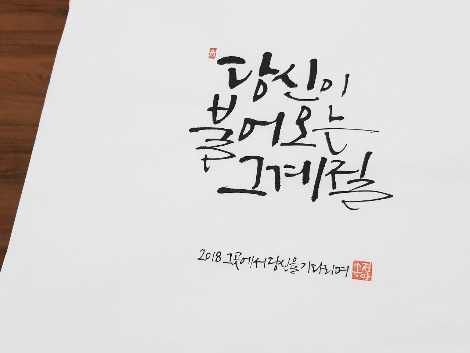 당신이
불어오는
그계절
2018 그곳에서 당신을 기다리며